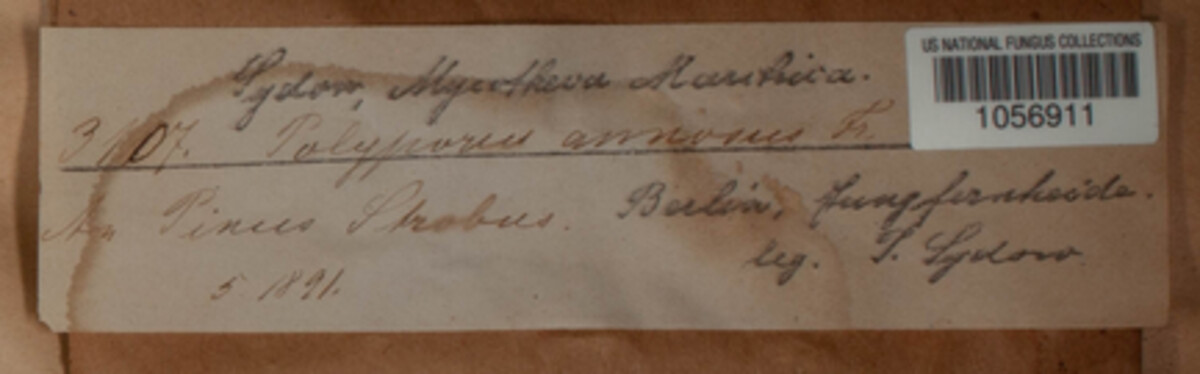 Sydow, Mycotheca Marchica.
US NATIONAL FUNGUS COLLECTIONS
1056911
3107. Polyporus annosus Fr.
An Pinus Strobus. Berlin, Jungfernheide.
leg. P. Sydow
5. 1891.